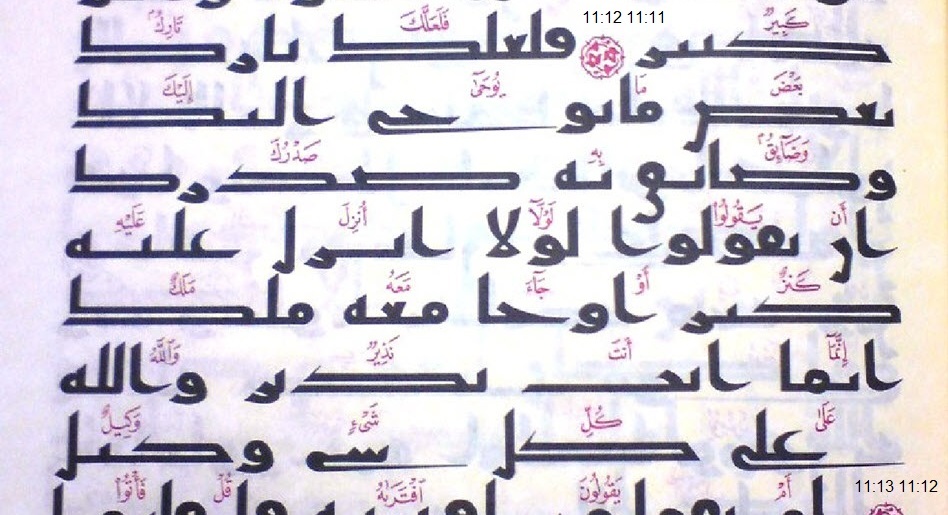 11:12 11:11
كَبِيرٌ فَلَعَلَّكَ تَارِكٌۢ
كبير فلعلك تارك
بَعْضَ مَا يُوحَىٰٓ إِلَيْكَ
بعض ما يوحى اليك
وَضَآئِقٌۢ بِهِۦ صَدْرُكَ
وضايق به صدرك
أَن يَقُولُوا۟ لَوْلَآ أُنزِلَ عَلَيْهِ
ان يقولوا لولا انزل عليه
كَنزٌ أَوْ جَآءَ مَعَهُۥ مَلَكٌ
كنز او جا معه ملك
إِنَّمَآ أَنتَ نَذِيرٌ وَٱللَّهُ
انما انت نذير والله
عَلَىٰ كُلِّ شَىْءٍ وَكِيلٌ
على كل شى وكيل
11:13 11:12
أَمْ يَقُولُونَ ٱفْتَرَىٰهُ قُلْ فَأْتُوا۟